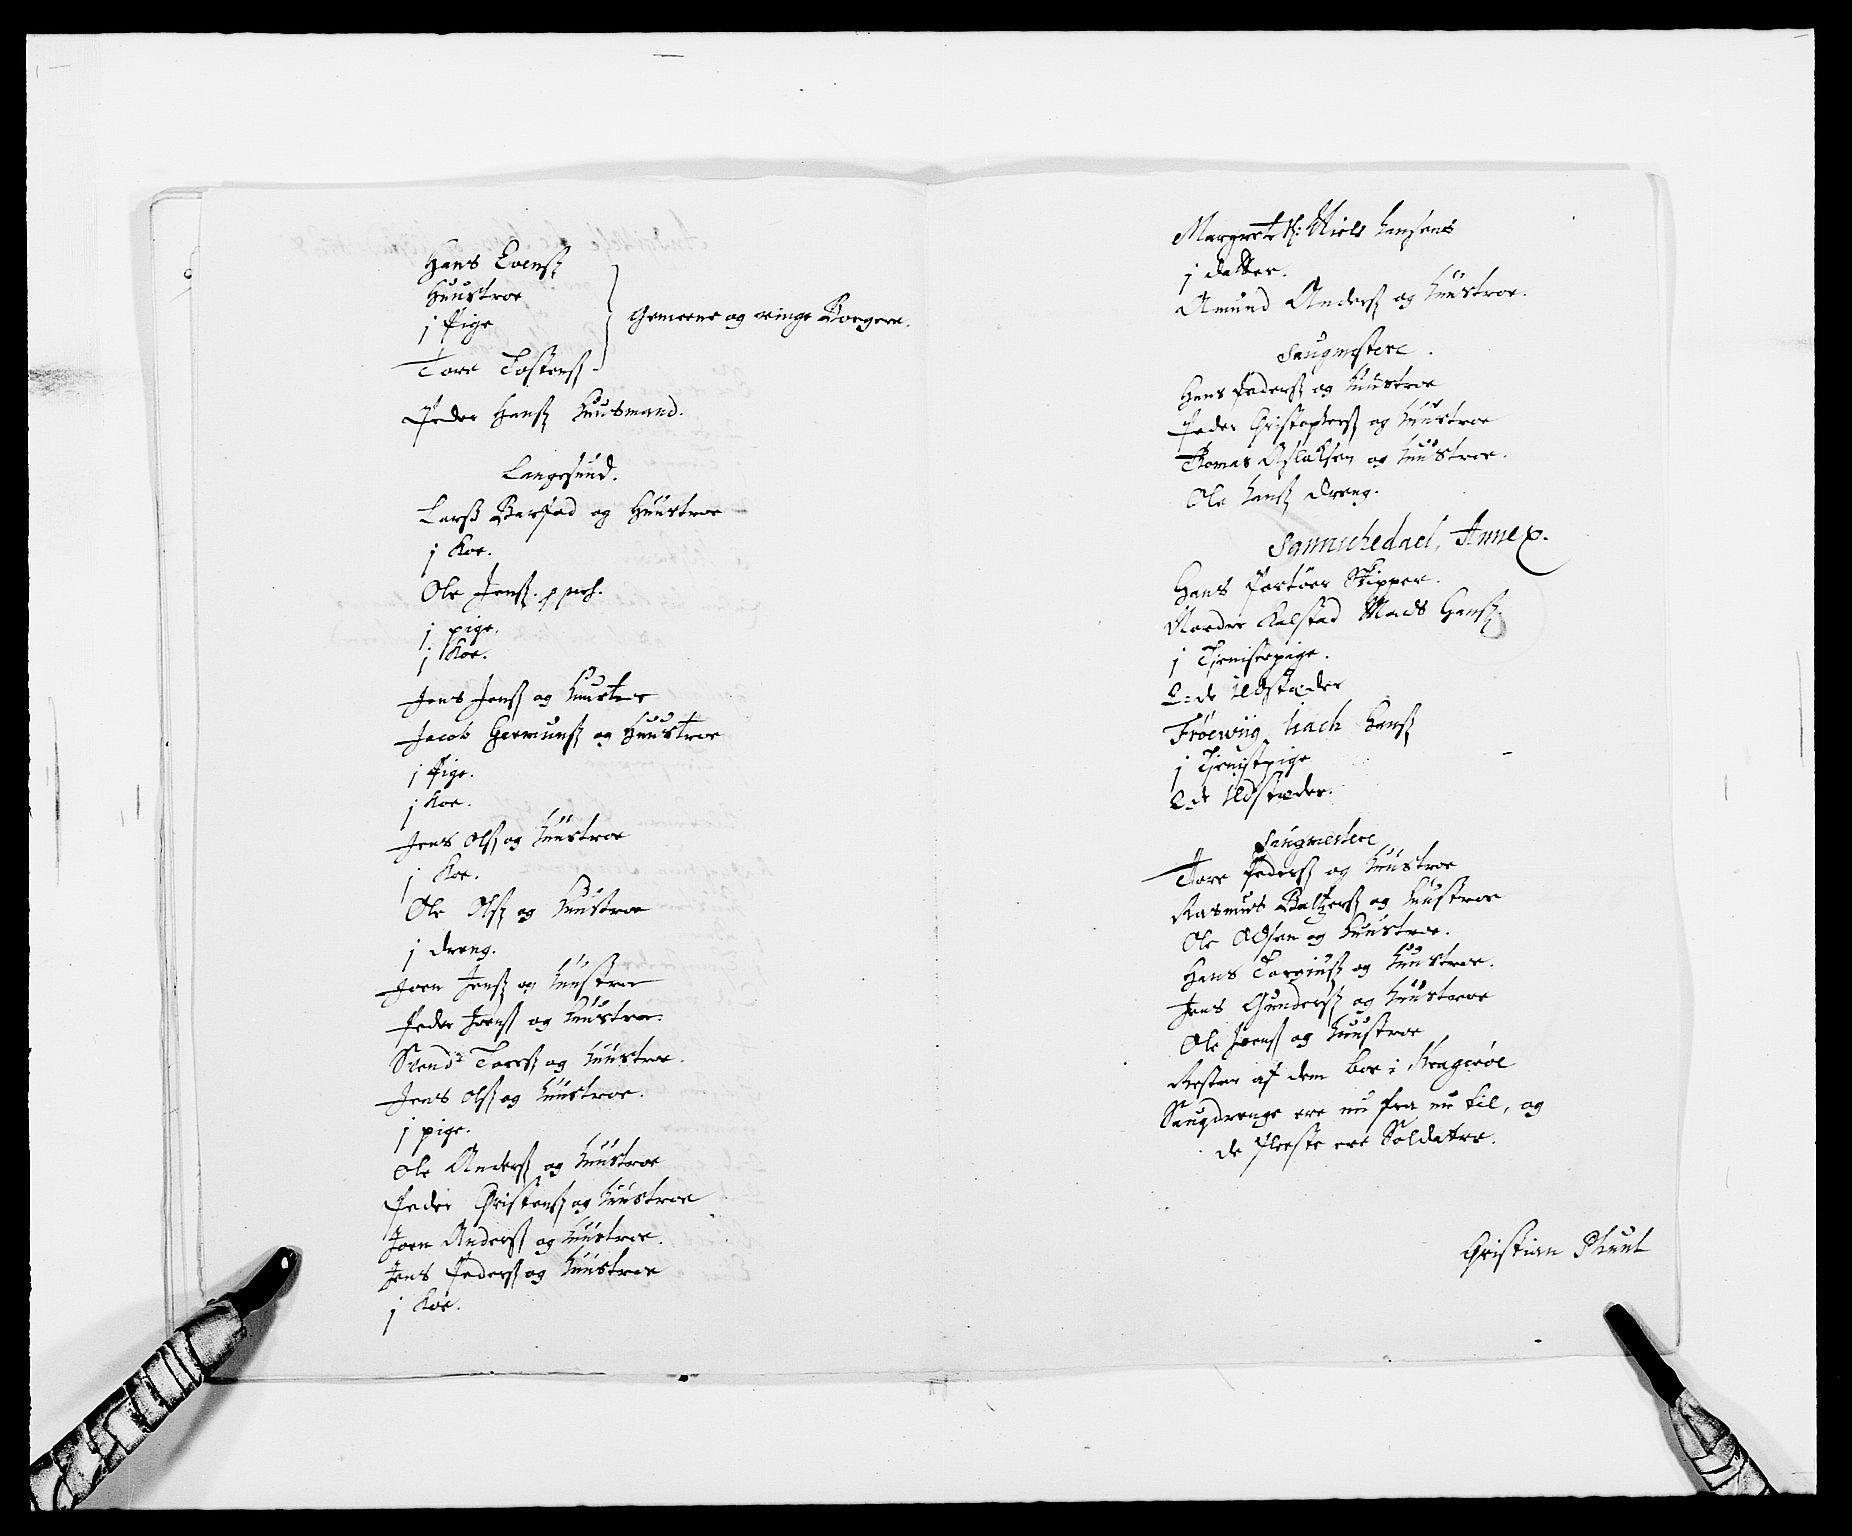 Hans Evenß
Huustroe
j Pige
Gemeene og ringe Borgere.
Tore Tostenß
Peder Hanß Huusmand.
Langesund.
Larß Barfod og Huustroe
j Koe.
Ole Jenß.
j pige.
j Koe.
Jens Jenß og huustroe
Jacob Germunß og Huustroe
j Pige.
j Koe.
Jens Olß og huustroe
j Koe.
Ole Olß og huustroe
j dreng.
Joen Jenß og huustroe
Peder Joenß og huustroe.
Svend Torß og huustroe.
Jens Olß og huustroe.
j pige.
Ole Anderß og huustroe
Peder Christenß og huustroe
Joen Anderß og huustroe.
Jens Pederß og huustroe
j Koe.
Margrete Niels hansens
j datter.
Amund Anderß og huustroe.
Saugmestere.
Hans Pederß og huustroe
Peder Christopherß og huustroe
Thomas Aslaksen og huustroe.
Ole hanß dreng.
Sannichedael, Annex.
Hans Portöer Skipper.
Nordre Kalstad Mads Hanß.
j Tjenistepige.
Ildstæder
Fröewiig, Isach Hanß
j Tjenistpige
Ildstæder.
Saugmestere
Tore Pederß og huustroe
Rasmus Baltzerß og huustroe
Ole Olsen og huustroe.
Hans Torgiusß og huustroe.
Jens Gunderß og huustroe
Ole Joenß og huustroe
Resten af dem boe i Kragerøe
Saugdrenge ere nu fra nu til, og
de fleeste ere Soldatre.
Christian Pluul